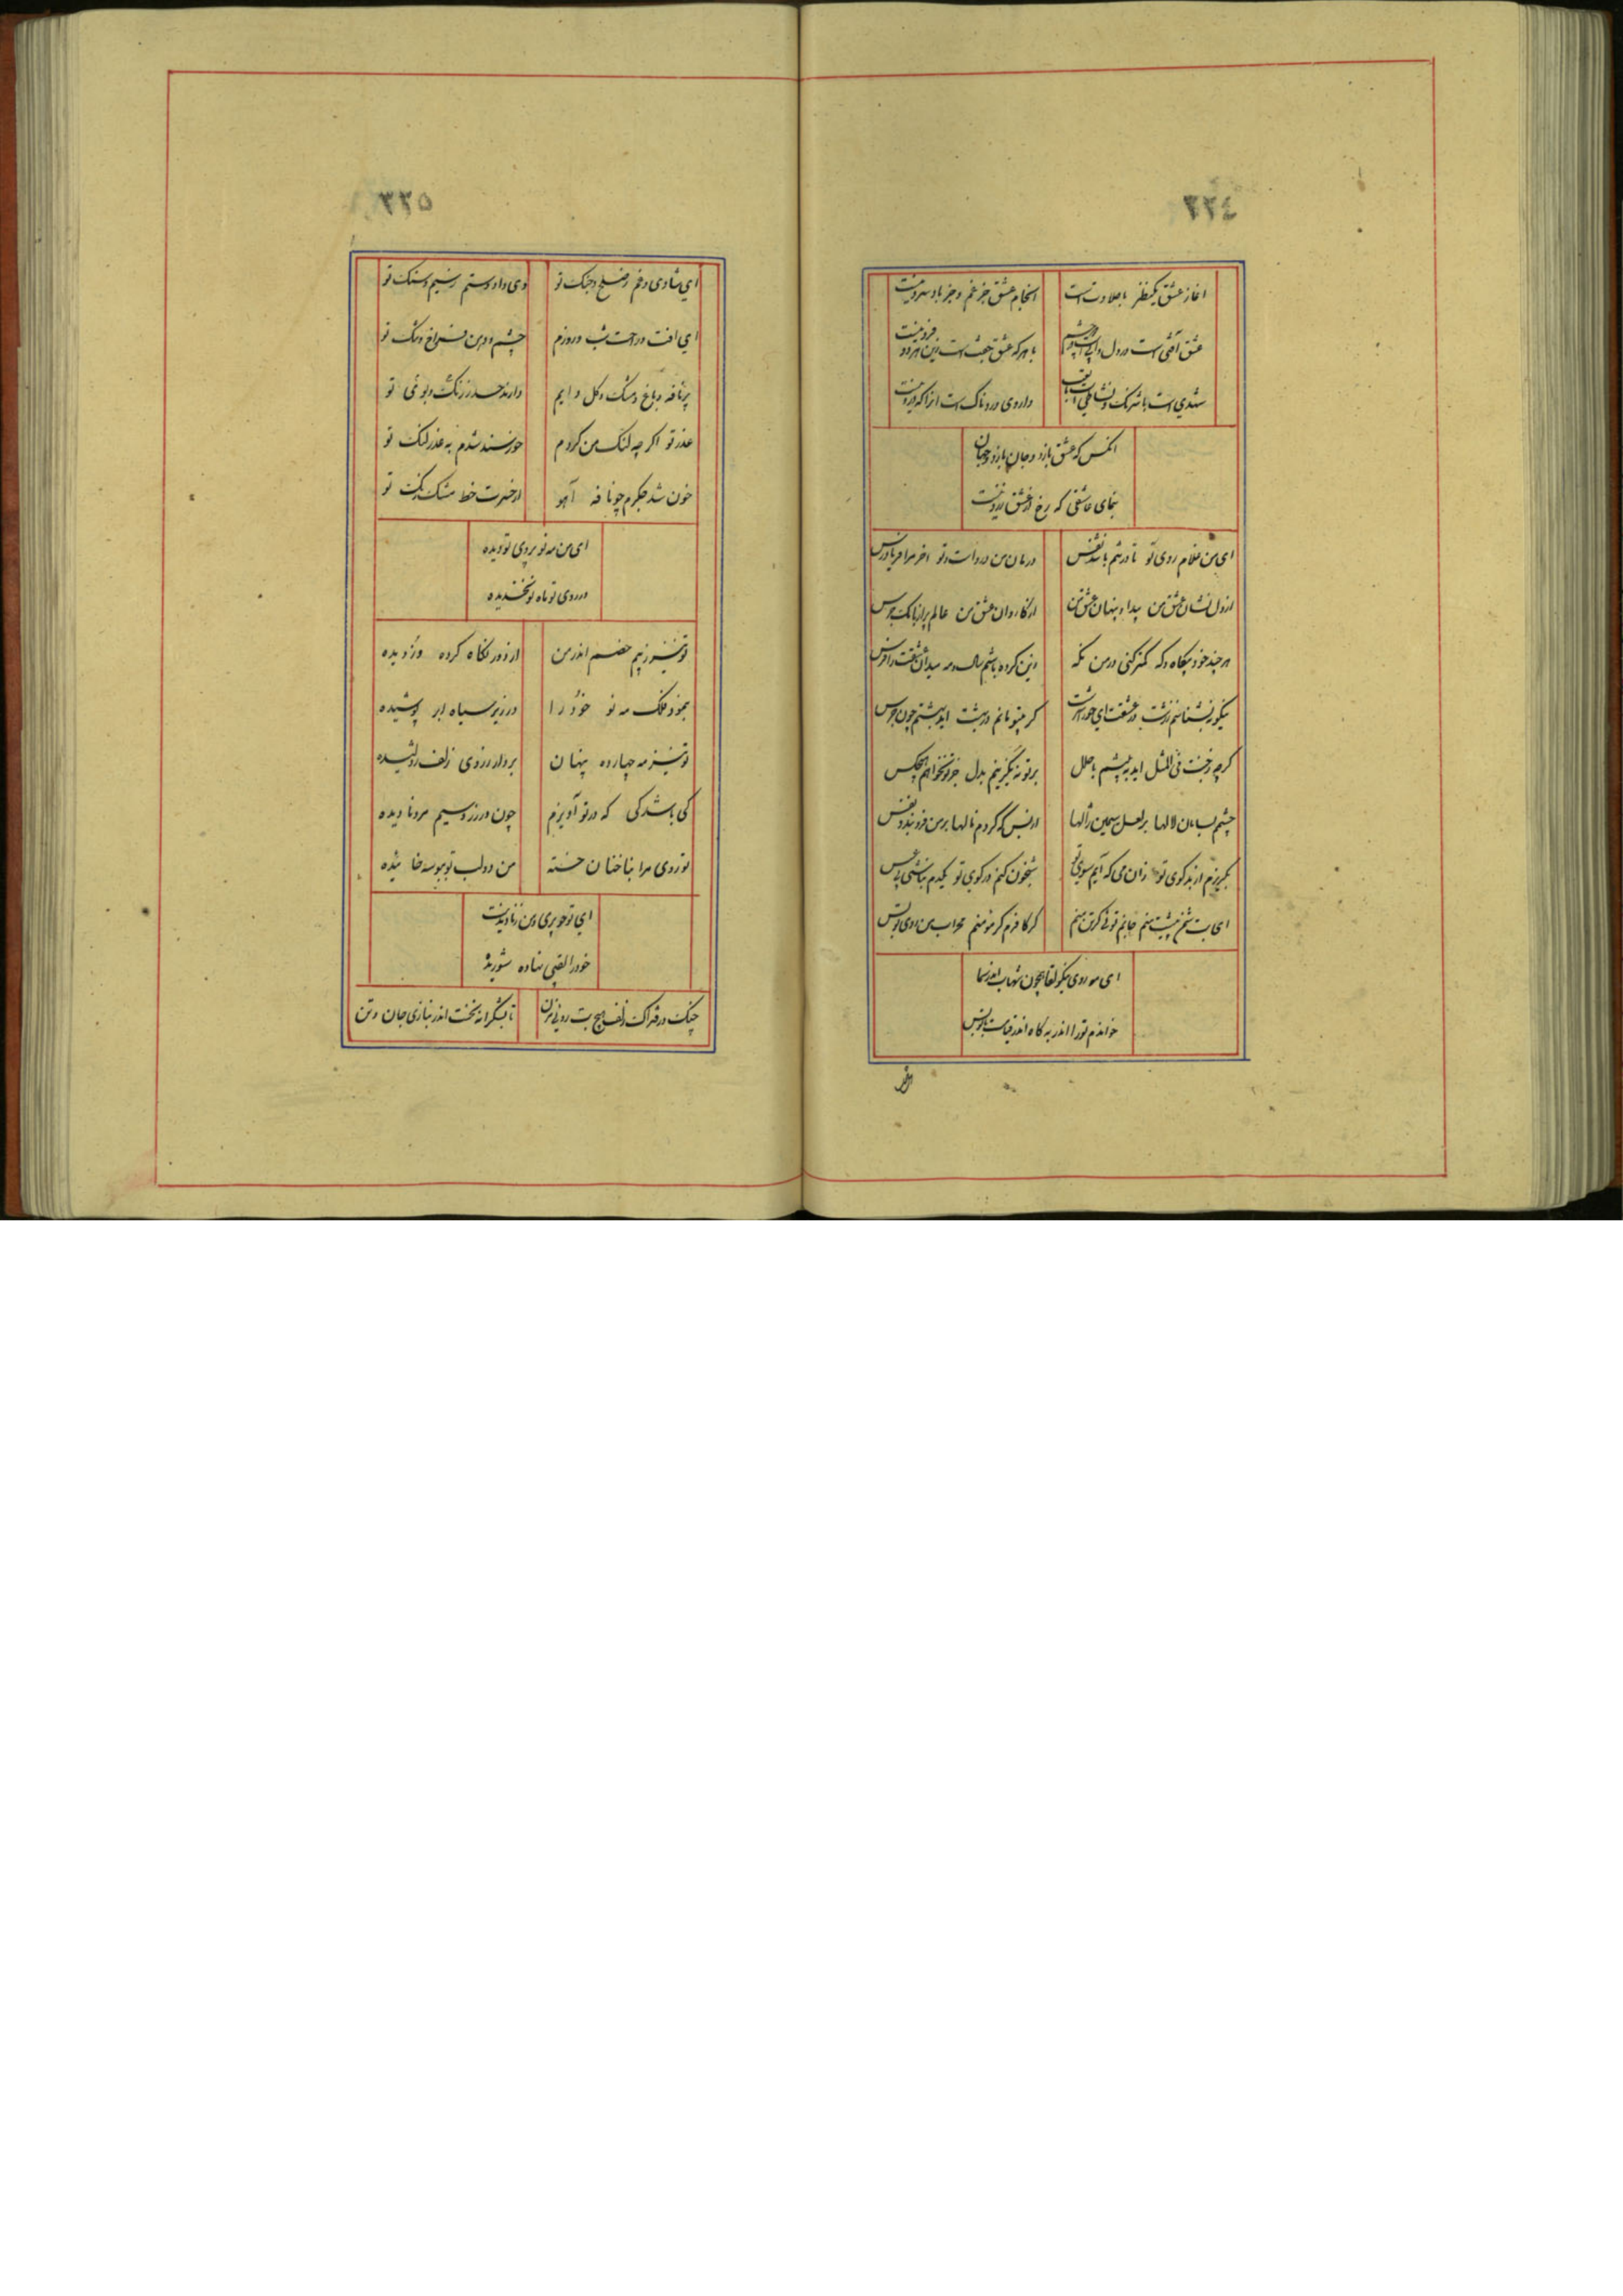 ٣٣٤
اغاز عشق یکنظر با حلاوت است
انجام عشق جز غم و جز باد سرد نیست
عشق آتشی است در دل و آبی است در دو چشم
با هر که عشق جفت است زین هر دو فرد نیست
شهدی است با شرنگ و نشاطی است با تعب
داروی دردناک است آنرا که درد نیست
انکس که عشق بازد و جان بازد و جهان
بنمای عاشقی که رخ از عشق زرد نیست
ای من غلام روی تو تا در تنم باشد نفس
درمان من در دست تو اخر مرا فریاد رس
در دل نشان عشق من پیدا و پنهان عشق من
از کاروان عشق من عالم پر از بانگ جرس
هر چند خود بیگاه و گه کمتر کنی در من نگه
این کرده باشم سال و مه میدان عشقت را فرس
نیکو بنشناسم ز زشت در عشقت ای حورا سرشت
گر بیتو مانم در بهشت آید بهشتم چون حرس
گرچه رخت فی المثل اید به پیشم با حلل
بر تو نه بگزینم بدل جز تو نخواهم هیچکس
چشم بسان لالها بر لعل سیمین ژالها
از بس که کردم نالها بر من فرو بندد نفس
بگریزم از بند کوی تو زان می که آیم سوی تو
شبخون کنم در کوی تو یکدم نباشی بی عسس
ای بت شمن پیشت منم جانم توئی گر تن منم
گر کافرم گر مؤمنم محراب من روی تو بس
ای مه روی نیکو لقا همچون شهاب اندر سما
خواندم تو را اندر
٣٣٥
ای شادی و غم ز صلح و جنگ تو
وی داد و ستم ز سیم و سنگ تو
ای افت و راحت شب و روزم
چشم و دهن فراخ و تنگ تو
پر نافه و باغ و مشک و گل دایم
دارند حسد ز رنگ و بوی تو
عذر تو اگر چه لنگ من کردم
خورسند شدم به عذر لنگ تو
خون شد جگرم چو نافه آهو
از حسرت خط مشک رنگ تو
ای من مه نو بروی تو دیده
در روی تو ماه نو بخندیده
تو نیز ز بیم خصم اندر من
از دور نگاه کرده دزدیده
بنمود فلک مه نو خود را
در زیر سیاه ابر پوشیده
تو نیز مه چهارده پنهان
بردار ز روی زلف ژولیده
کی باشد کی که در تو آویزم
چون در زر و سیم مرد نادیده
تو روی مرا بناخنان خسته
من دو لب تو ببوسه خائیده
ای تو چو پری و من ز نادیدنت
خود را لقبی نهاده شوریده
چنگ در فتراک زلف هیچ بت روئی مزن
تا بشکرانه نخست اندر نبازی جان و تن